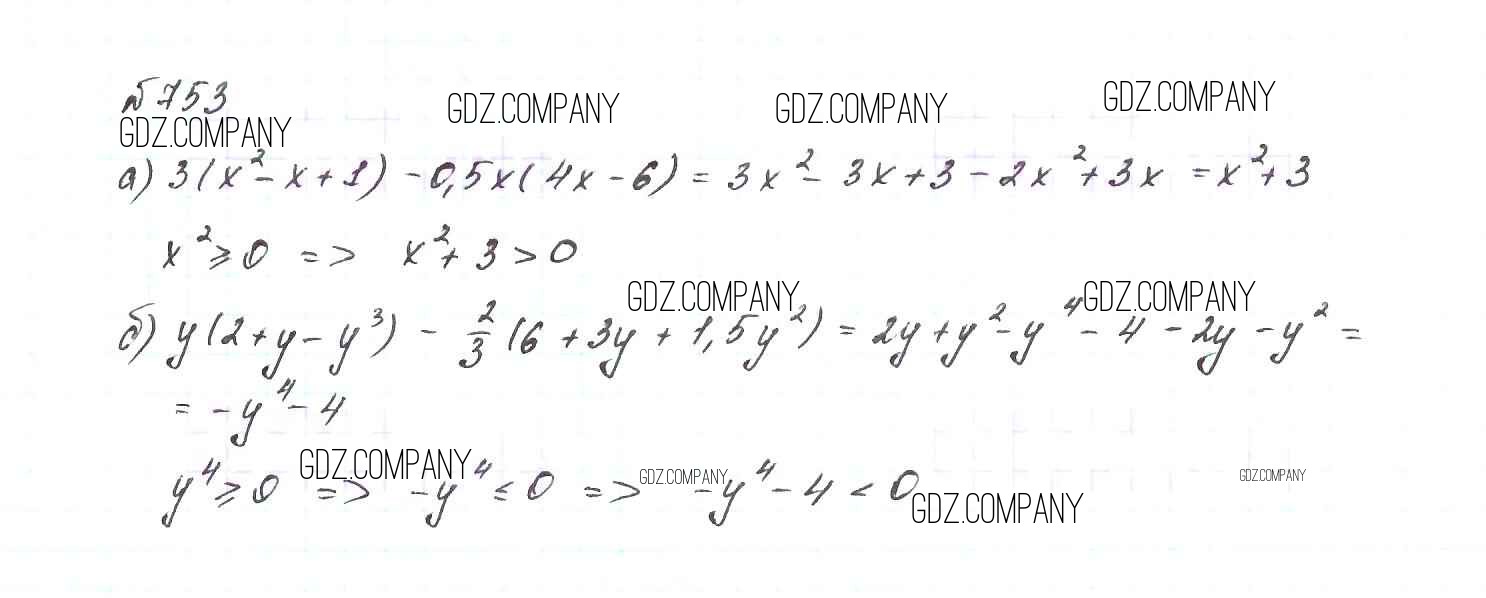 №753
GDZ.COMPANY GDZ.COMPANY GDZ.COMPANY GDZ.COMPANY
а) 3(x² - x + 1) - 0,5x(4x - 6) = 3x² - 3x + 3 - 2x² + 3x = x² + 3
x² ≥ 0 => x² + 3 > 0
GDZ.COMPANY GDZ.COMPANY
б) y(2 + y - y³) - 2/3 (6 + 3y + 1,5y²) = 2y + y² - y⁴ - 4 - 2y - y² =
= -y⁴ - 4
GDZ.COMPANY GDZ.COMPANY GDZ.COMPANY
y⁴ ≥ 0 => -y⁴ ≤ 0 => -y⁴ - 4 < 0
GDZ.COMPANY